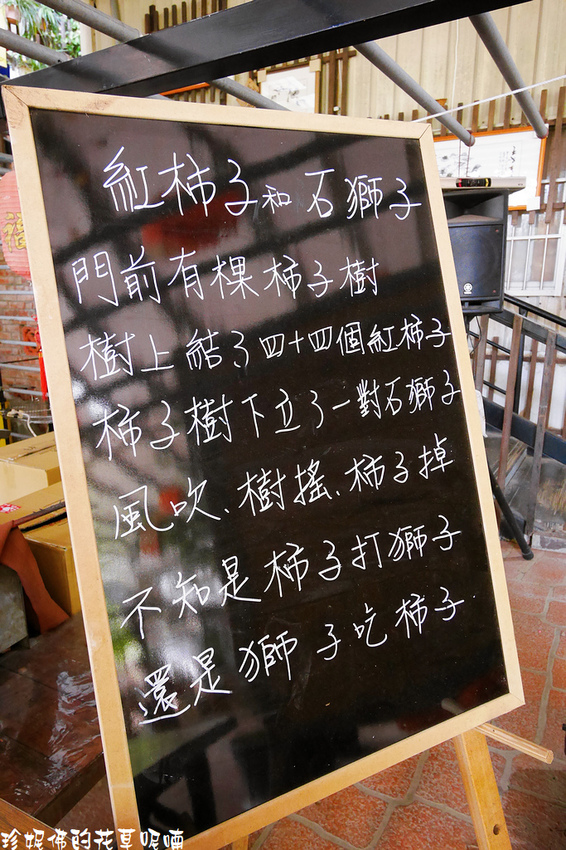 紅柿子和石獅子
門前有棵柿子樹
樹上結了四十四個紅柿子
柿子樹下立了一對石獅子
風吹、樹搖、柿子掉
不知是柿子打獅子
還是獅子吃柿子
珍妮佛的花草呢喃